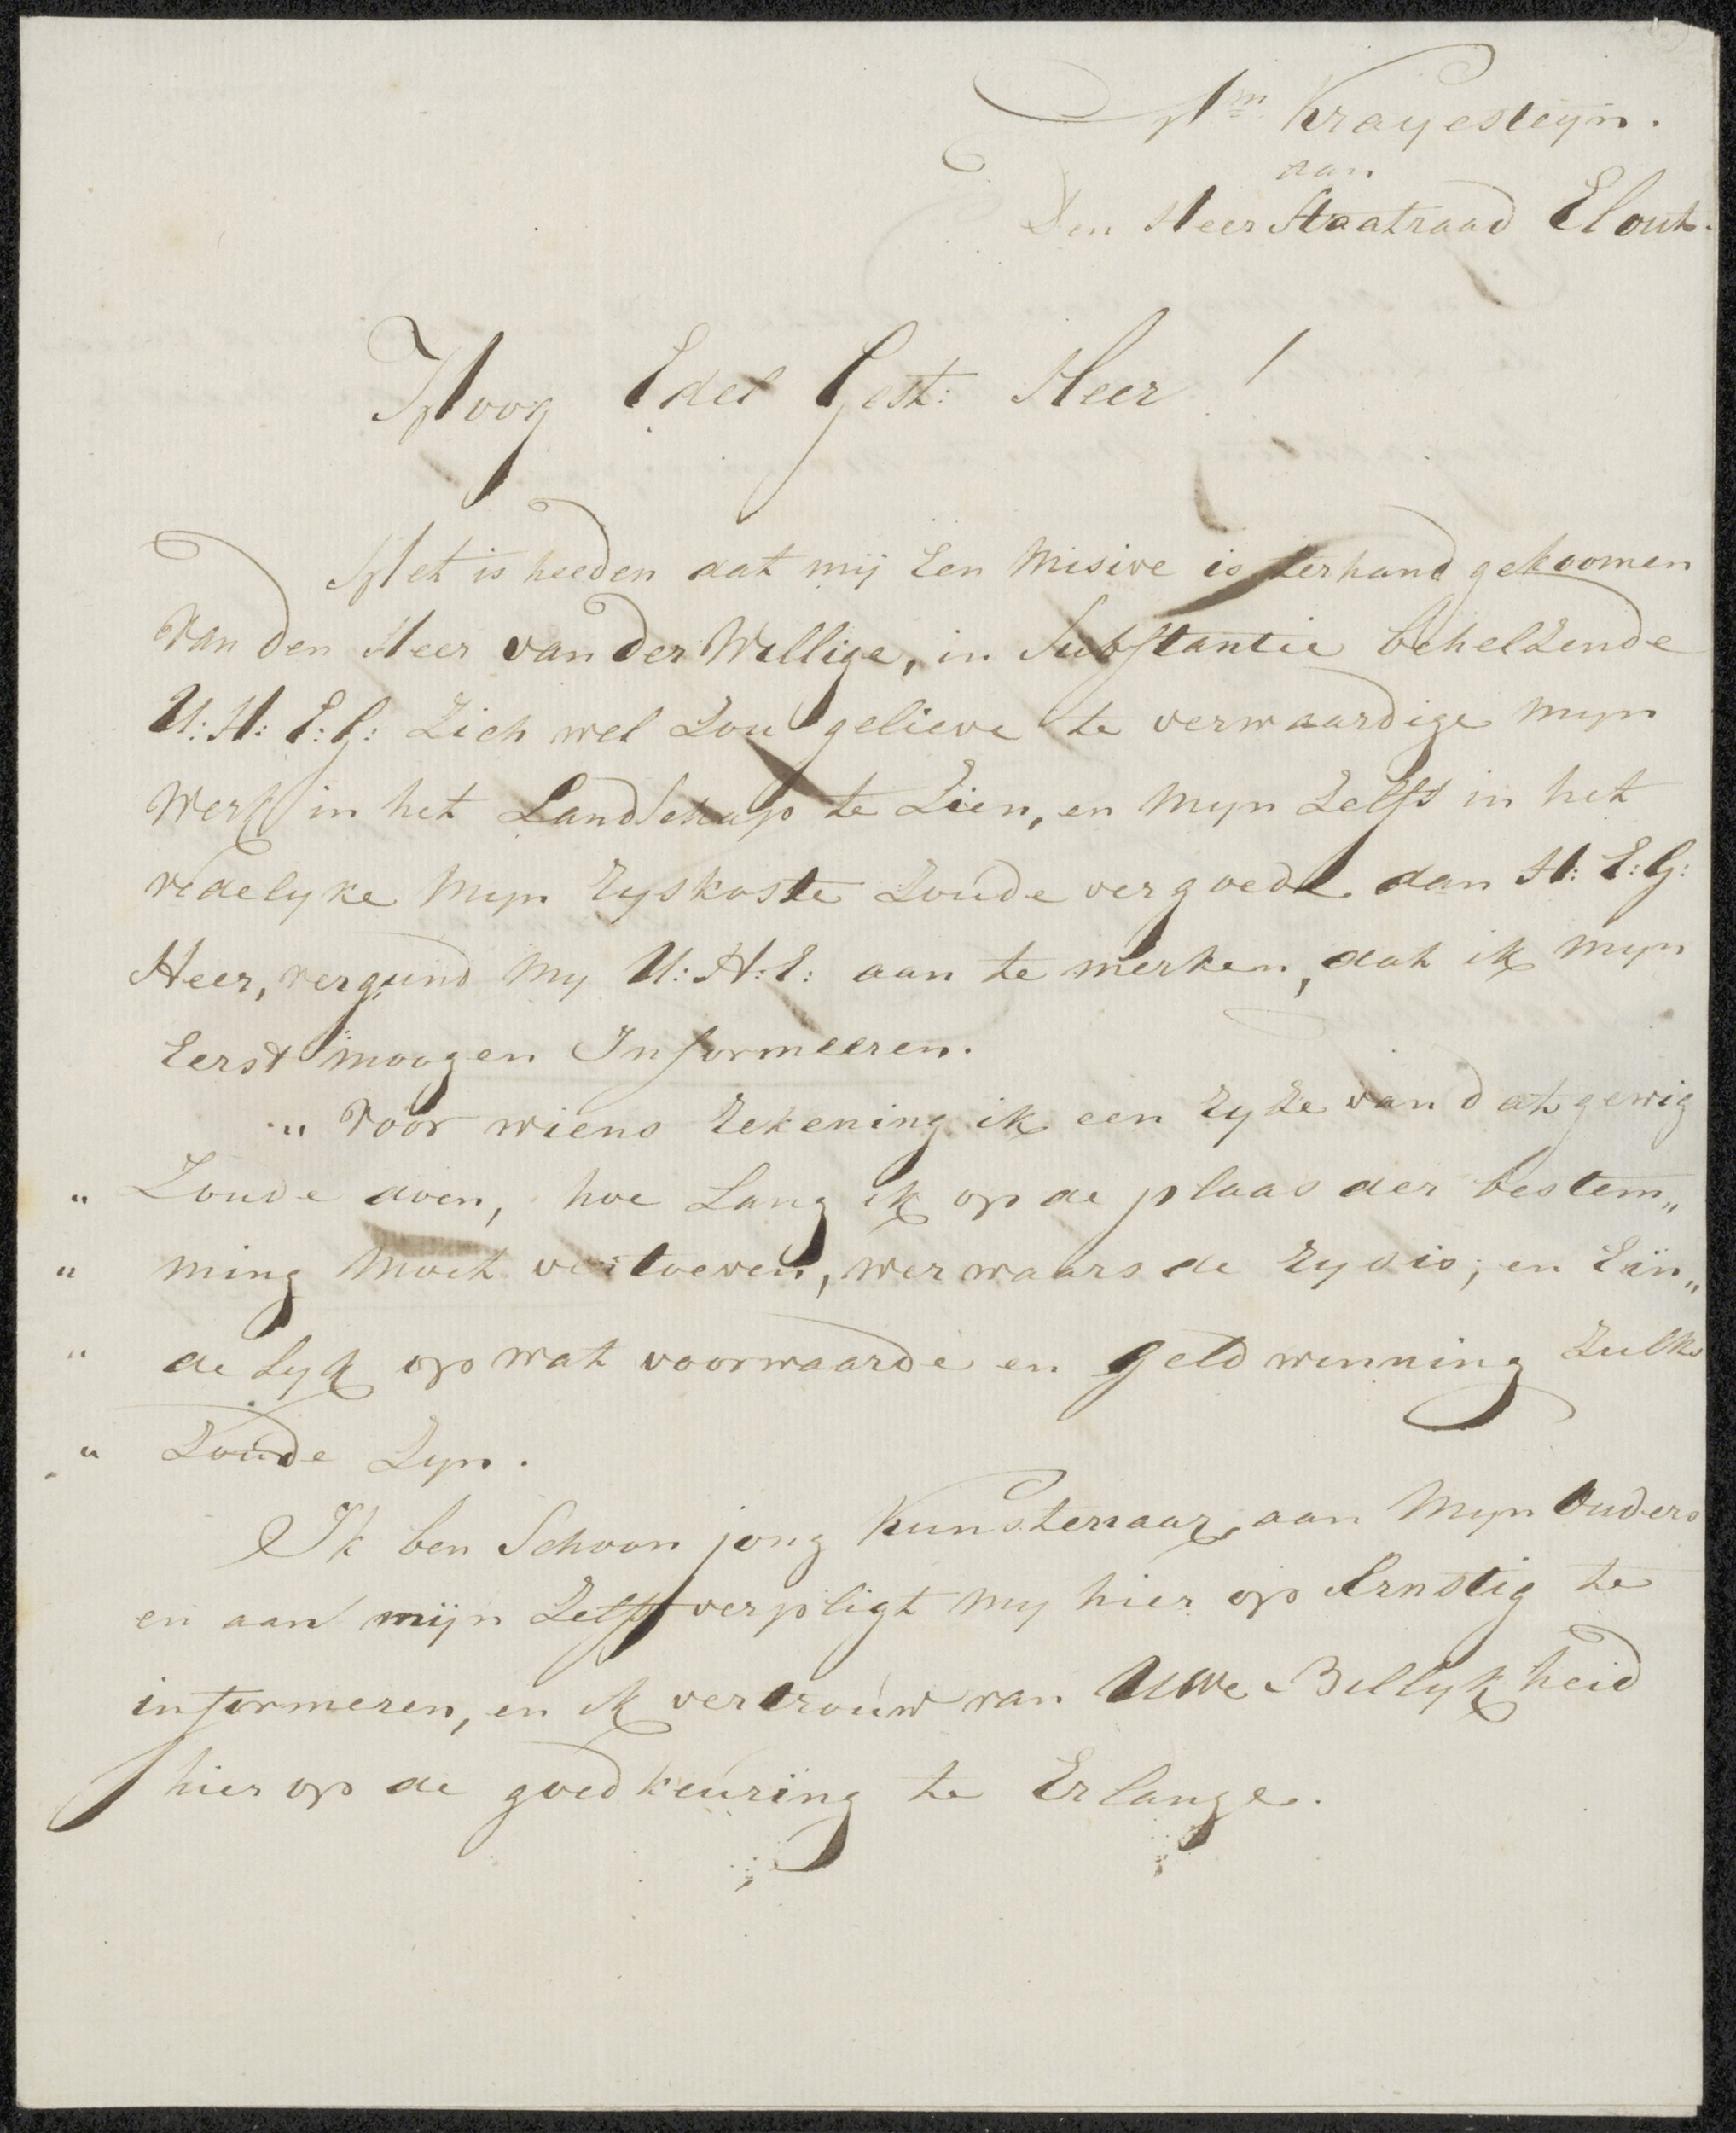 Am Krayesteijn.
aan
Den Heer Staatraad Elout.
Hoog Edel Gest: Heer!
Het is heeden dat mij Een Misive is terhand gekoomen
Van den Heer van der Willige, in Substantie behelzende
U: H: E: G: Zich wel Zou gelieve te verwaardige Myn
Werk in het Landschap te Zien, en Myn Zelfs in het
redelyke Myn Ryskoste Zoude vergoede dan H: E: G:
Heer, vergund My U: H: E: aan te merken, dat ik Myn
Eerst moogen Informeeren.
„ Voor wiens Rekening ik een Ryze van dat gewig
„ Zoude doen, hoe Lang ik op de plaas der bestem„
„ ming Moet vertoeven, werwaars de Rys is; en Ein„
„ delyk op wat voorwaarde en geldwinning Zulks
„ Zoude Zyn.
Ik ben Schoon jong Kunstenaar, aan Myn Ouders
en aan mijn Zelfs verpligt My hier op Ernstig te
informeren, en ik vertrouw van Uwe Billykheid
hier op de goedkeuring te Erlange.